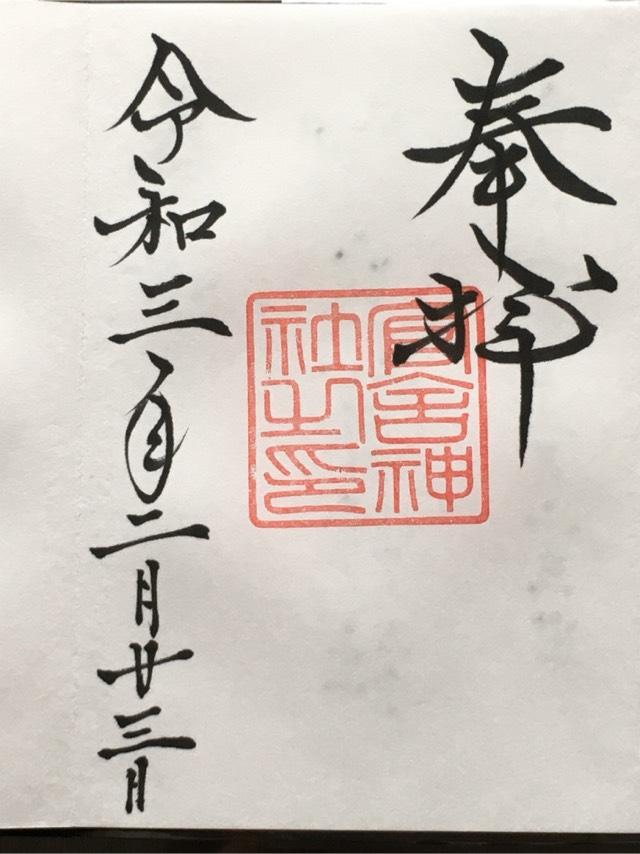 奉拝
官舎神
社之印
令和三年二月廿三日